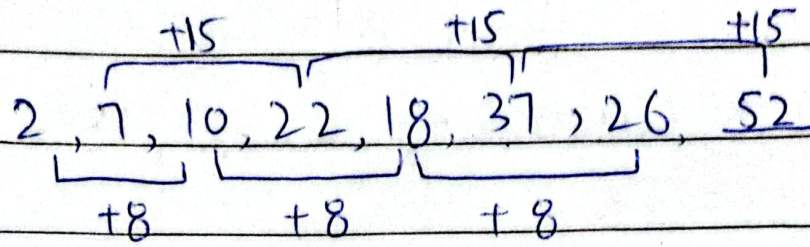 +15 +15 +15
2, 7, 10, 22, 18, 37, 26, 52
+8 +8 +8